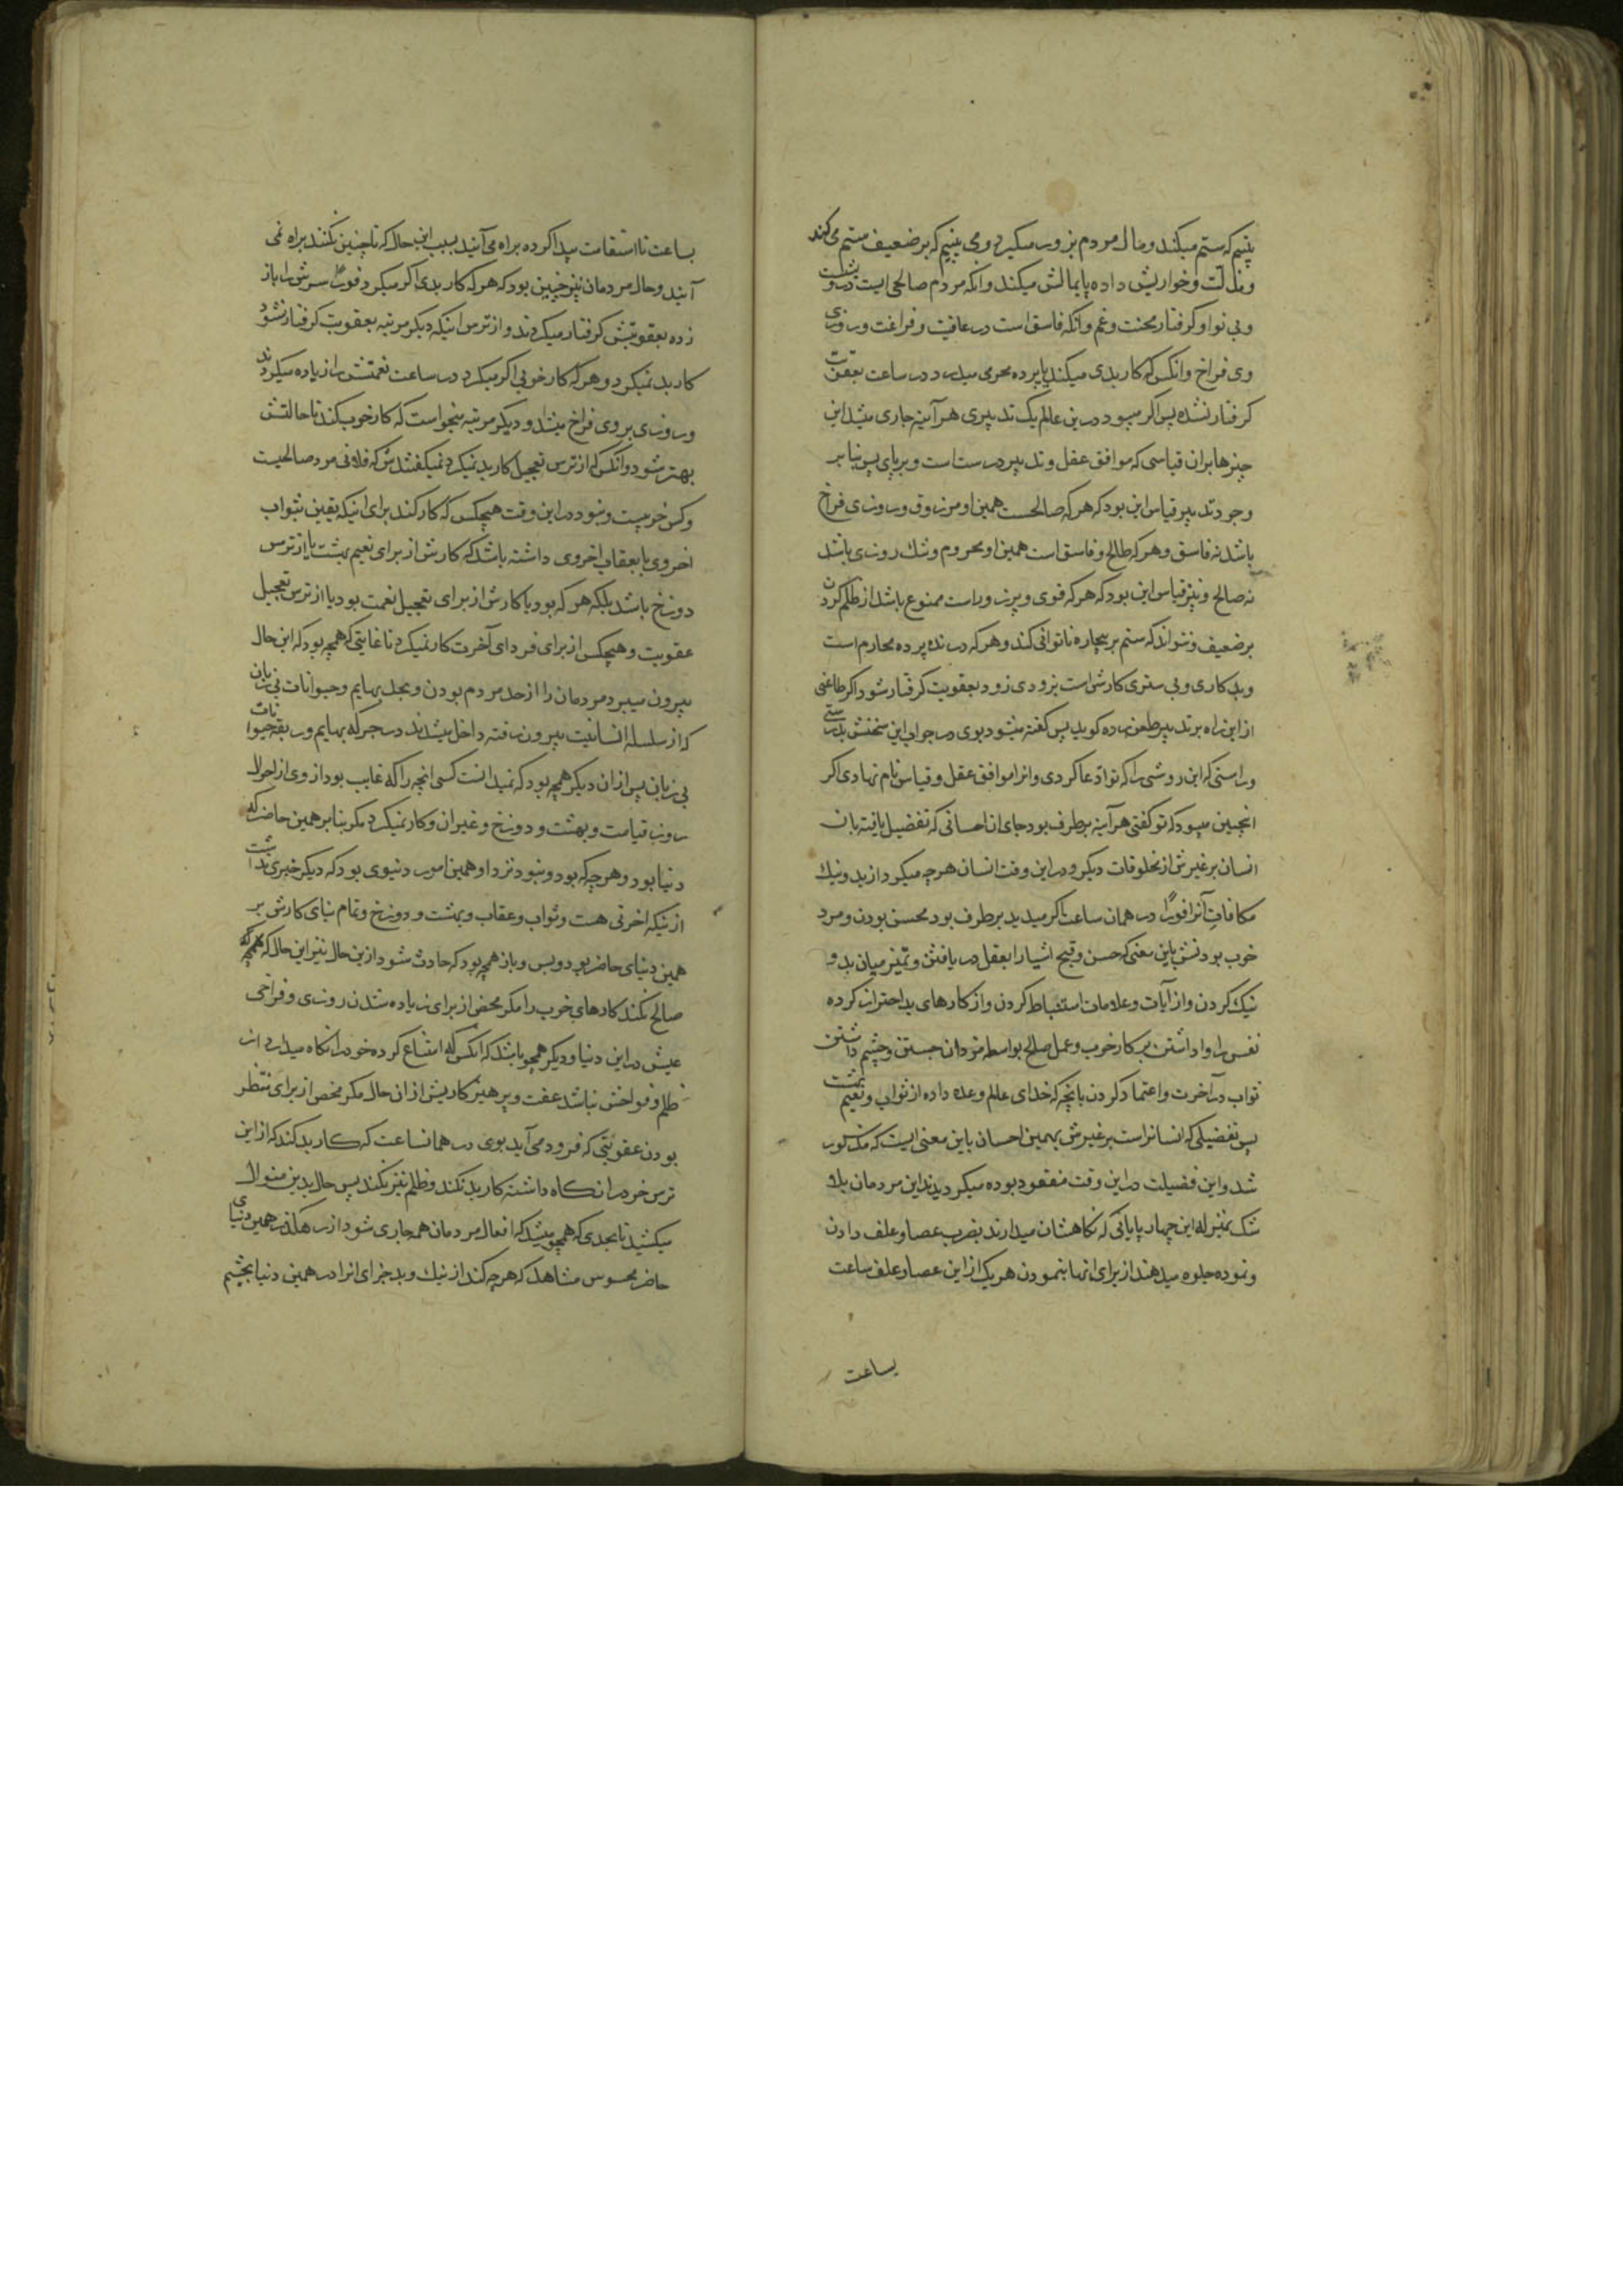 بینیم که ستم میکند ومال مردم بزور میگیرد ومی بینیم که بر ضعیف ستم می کند
ومذلت وخواریش داده پایمالش میکند وانکه مردم صالحی است درویشست
وبی نوا وکرفتار محنت وغم وانکه فاسق است در عافیت وفراغت وروزی
وی فراخ وانکس که کار بدی میکند یا پرده محرمی میدرد در ساعت بعقوبت
کرفتار نشده پس اکر میبود درین عالم یک تدبیری هر آینه جاری میشد این
چیزها بران قیاسی که موافق عقل وتدبیر درست است وبر پای پس بنا بر
وجود تدبیر قیاس این بود که هر که صالحست همین او مرزوق وروزی فراخ
باشد نه فاسق وهر که طالح وفاسق است همین او محروم وتنک روزی باشد
نه صالح ونیز قیاس این بود که هر که قوی وپرزوراست ممنوع باشد از ظلم کردن
بر ضعیف ونتواند که ستم بر بیچاره ناتوانی کند وهر که درنده پرده محارم است
وبد کاری وبی ستری کارش است بزودی زود بعقوبت کرفتار شود اکر طاغی
از این راه بر تدبیر طعن زده کوید پس کفته میشود بوی در جواب این سخنش بدرستی
وراستی که این روشی را که تو ادعا کردی وانرا موافق عقل وقیاس نام نهادی اکر
انچنین میبود که تو کفتی هر آینه برطرف بود جای ان احسانی که تفضیل یافته بان
انسان بر غیرش از مخلوقات دیکر ودر این وقت انسان هر چه میکرد از بد ونیک
مکافات آنرا فورًا در همان ساعت اکر میدید برطرف بود محسن بودن ومرد
خوب بودنش باین معنی که حسن وقبح اشیا را بعقل در یافتن وتمیز میان بد و
نیک کردن واز آیات وعلامات استنباط کردن واز کارهای بد احتراز کرده
نفس را وا داشتن بر کار خوب وعمل صالح بواسطه مزد ان جستن وچشم داشتن
ثواب در آخرت واعتماد کردن بانچه که خدای عالم وعده داده از ثواب ونعیم بهشت
پس تفضیلی که انسانراست بر غیرش بهمین احسان باین معنی است که مذکور
شد واین فضیلت در این وقت مفقود بوده میکردیدند این مردمان بلا
شک بمنزله این چهار پایانی که نکاهشان میدارند بضرب عصا وعلف دادن
ونموده جلوه میدهند از برای انها بنمودن هر یک از این عصا وعلف ساعت
بساعت
بساعت تا استقامت پیدا کرده براه می آیند بسبب این حال که تا چنین نکنند براه نمی
آیند وحال مردمان نیز چنین بود که هر که کار بدی اکر میکرد فورًا سرش را باز
زده بعقوبتش کرفتار میکردند واز ترس اینکه دیکر مرتبه بعقوبت کرفتار نشود
کار بد نمیکرد وهر که کار خوبی اکر میکرد در ساعت نعمتش را زیاده میکردند
وروزی بر وی فراخ میشد ودیکر مرتبه میخواست که کار خوب کند تا حالتش
بهتر شود وانکس که از ترس تعجیل کار بد نمیکرد نمیکفتندش که فلانی مرد صالحیست
وکس خوبیست ونبود در این وقت هیچکس که کار کند برای اینکه یقین بثواب
اخروی یا بعقاب اخروی داشته باشد که کارش از برای نعیم بهشت یا از ترس
دوزخ باشد بلکه هر که بود یا کارش از برای تعجیل نعمت بود یا از ترس تعجیل
عقوبت وهیچکس از برای فردای آخرت کار نمیکرد تا غایتی که همچه بود که این حال
بیرون میبرد مردمان را از حد مردم بودن وبحد بهایم وحیوانات بی زبان
که از سلسله انسانیت بیرون رفته داخل میشدند در جرکه بهایم وربقه حیوانات
بی زبان پس از ان دیکر همچه بود که نمیدانست کسی انچه را که غایب بود از وی از احوال
روز قیامت وبهشت ودوزخ وغیر ان وکار نمیکرد مکر بنا بر همین حاضر که
دنیا بود وهر چه که بود ونبود نزد او همین امور دنیوی بود که دیکر خبری نداشت
از نیکه اخرتی هست وثواب وعقاب وبهشت ودوزخ وتمام بنای کارش بر
همین دنیای حاضر بود وبس وباز همچه بود که حادث شود از ین حال نیز این حال که همچه که
صالح نکند کارهای خوب را مکر محض از برای زیاده شدن روزی وفراخی
عیش در این دنیا ودیکر همچو باشد که انکس که امتناع کرده خود را نکاه میدارد از
ظلم وفواحش نباشد عفت وپرهیزکاریش از ان حال مکر محض از برای منتظر
بودن عقوبتی که فرود می آید بوی در همانساعت که کار بد کند که از این
ترس خود را نکاه داشته کار بد نکند وظلم نیز نکند پس حال بدین منوال
میکشید تا بحدی که همچو میشد که افعال مردمان همه جاری شود از رهکذر همین دنیای
حاضر محسوس مشاهد که هر چه کند از نیک وبد جزای انرا در همین دنیا بچشم